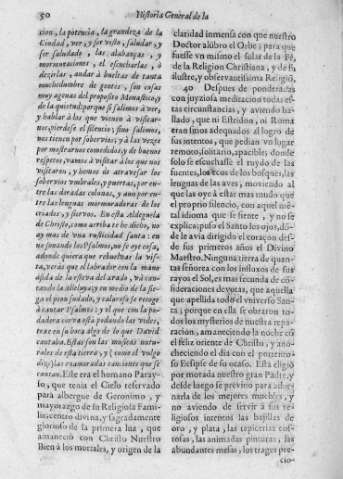 50 Historia General de la
cion, la potencia, la grandeza de la
Ciudad, ver, y ser visto, saludar, y
ser saludado, las alabanças, y
murmuraciones, el escucharlas, ò
dezirlas, andar à bueltas de tanta
muchedumbre de gentes, son cosas
muy agenas del proposito Monastico, y
de la quietud; porque si salimos à ver,
y hablar à los que vienen à visitar-
nos, pierdese el silencio; sino salimos,
nos tienen por sobervios; y à las vezes
por mostrarnos comedidos, y de buenos
respetos, vamos à visitar à los que nos
visitaron, y hemos de atravesar los
sobervios umbrales, y puertas, por en-
tre las doradas colunas, y aun por en-
tre las lenguas murmuradoras de los
criados, y siervos. En esta Aldeguela
de Christo, como arriba te he dicho, no
ay mas de una rusticidad santa: en
no sonando los Psalmos, no se oye cosa,
adonde quiera que rebueltas la vis-
ta, veràs que el labrador con la mano
asida de la esteva del arado, và can-
tando la Alleluya; y en medio de la sie-
ga el peon sudado, y caluroso se recoge
à cantar Psalmos; y el que con la po-
dadera corva està podando las vides,
trae en su boca algo de lo que David
cantava. Estas son las musicas natu-
rales de esta tierra, y (como el vulgo
dize) las enamoradas canciones que se
cantan. Este era el humano Paray-
so, que tenia el Cielo reservado
para albergue de Geronimo, y
mayorazgo de su Religiosa Fami-
lia: centro divino, y sagradamente
glorioso de la primera luz, que
amaneciò con Christo Nuestro
Bien à los mortales, y origen de la
claridad inmensa con que nuestro
Doctor alúbro el Orbe; para que
fuesse vn mismo el solar de la Fè,
de la Religion Christiana, y de su
ilustre, y observantissima Religiõ.
40 Despues de ponderadas
con juyzio maduro todas es-
tas circunstancias, y aviendo ha-
llado, que ni Estridon, ni Roma
eran sitios adequados al logro de
sus intentos, que pedian un lugar
remoto, solitario, apacible; donde
solo se escuchasse el ruydo de las
fuentes, los ecos de los bosques, las
lenguas de las aves, moviendo al
que las oye à estar mas mudo que
el proprio silencio, con aquel me-
tal idioma que se siente, y no se
explica; puso el Santo los ojos, dõ-
de le avia dirigido el coraçon des-
de sus primeros años el Divino
Maestro. Ninguna tierra de quan-
tas señorea con los influxos de sus
rayos el Sol, es mas fecunda de cõ-
sideraciones devotas, que aquella
que apellida todo el vniverso San-
ta; porque en ella se obraron to-
dos los mysterios de nuestra repa-
racion, amaneciendo la noche cõ
el feliz oriente de Christo, y ano-
checiendo el dia con el postrimo-
so Eclipse de su ocaso. Esta eligiò
por morada nuestro gran Padre, y
desde luego se previno para adhor-
narla de los mejores muebles, y
no aviendo de servir à sus re-
ligiosos intentos las bajillas de
oro, y plata, las tapicerias cos-
tosas, las animadas pinturas, las
abundantes mesas, los trages pre-
cio-